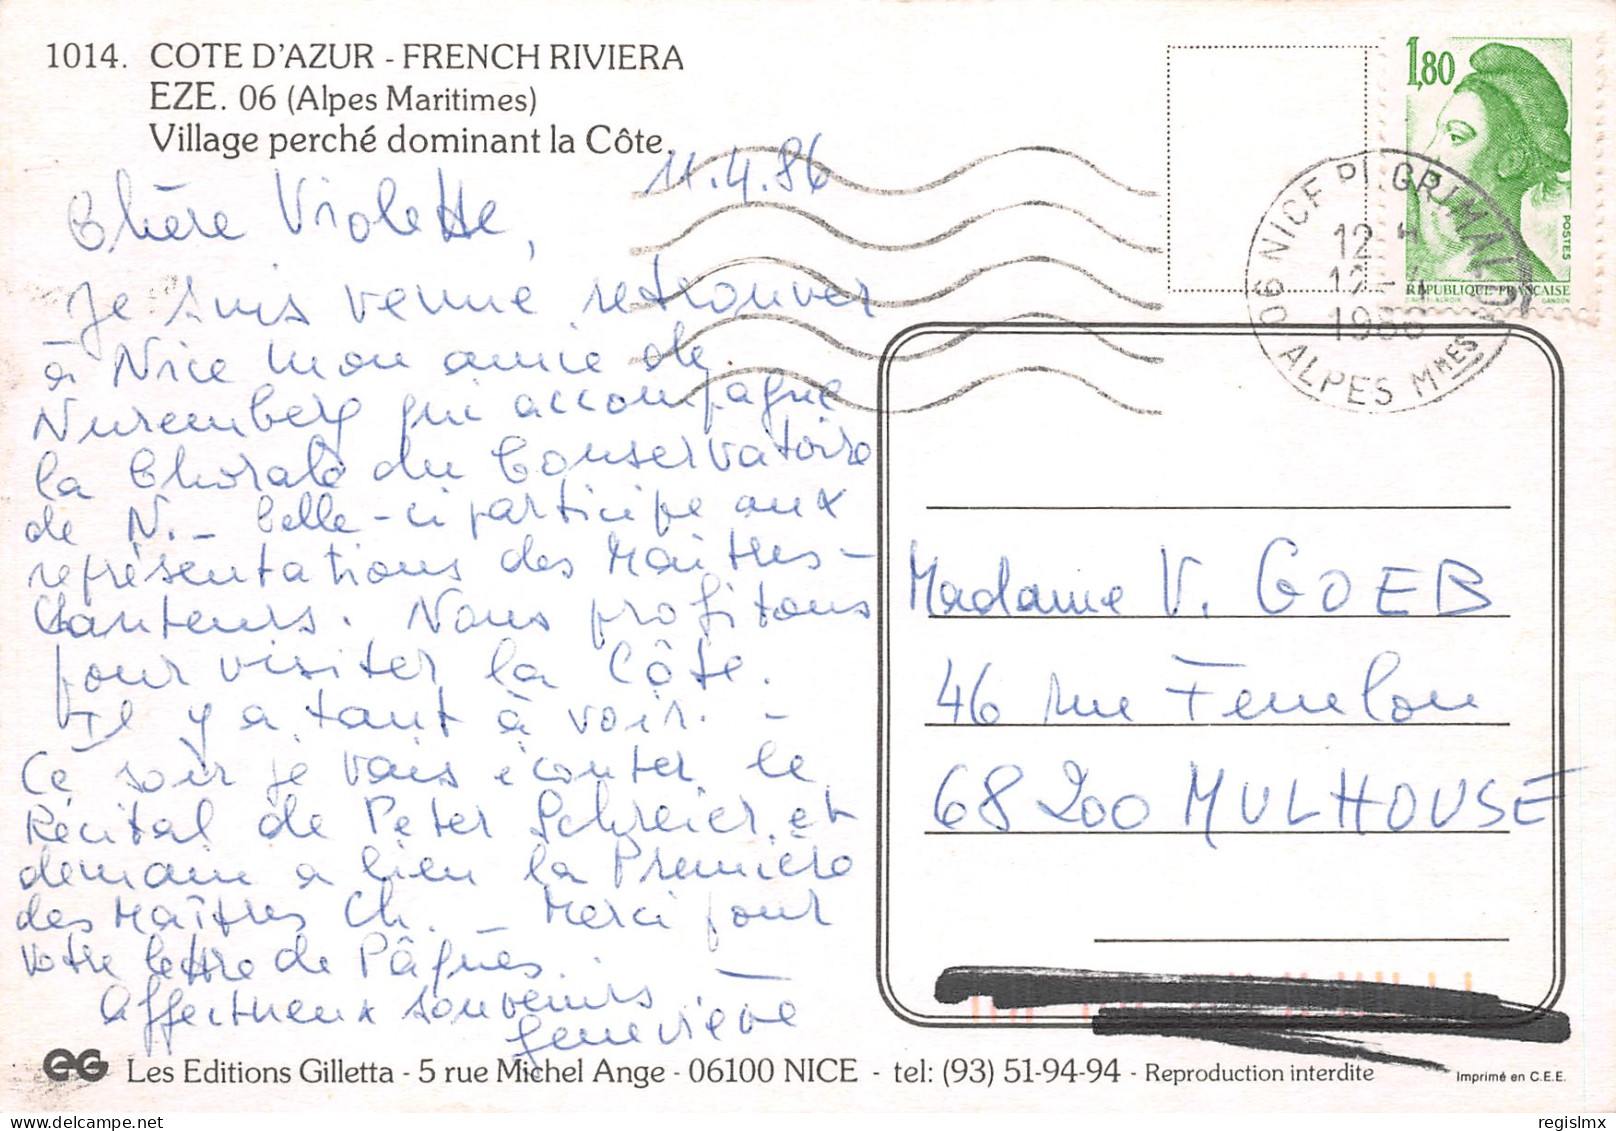 1014. COTE D'AZUR - FRENCH RIVIERA
EZE. 06 (Alpes Maritimes)
Village perché dominant la Côte.
11.4.86
Chère Violette,
Je suis venue retrouver
à Nice mon amie de
Nuremberg qui accompagne
la Chorale du Conservatoire
de N. _ Celle-ci participe aux
représentations des Maîtres-
Chanteurs. Nous profitons
pour visiter la Côte.
Il y a tant à voir. -
Ce soir je vais écouter le
Récital de Peter Schreier, et
demain a lieu la Première
des Maîtres Ch. _ Merci pour
votre lettre de Pâques.
Affectueux souvenirs
Geneviève
1,80
POSTES
RÉPUBLIQUE FRANÇAISE
GANDON
06 NICE PL GRIMALDI
12 H
12-4
1986
ALPES MMES
Madame V. GOEB
46 rue Fenelon
68200 MULHOUSE
EG Les Editions Gilletta - 5 rue Michel Ange - 06100 NICE - tel: (93) 51-94-94 - Reproduction interdite
Imprimé en C.E.E.
regislmx